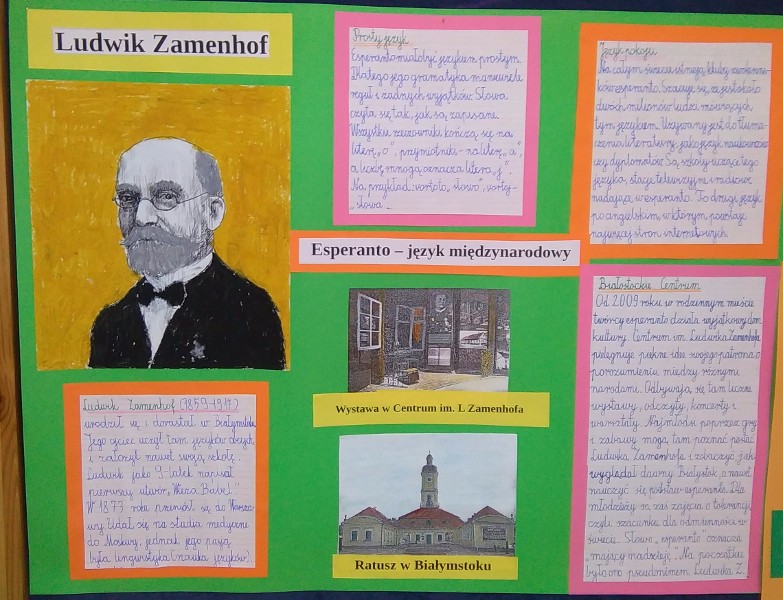 Ludwik Zamenhof
Ludwik Zamenhof (1859-1917)
urodził się i dorastał w Białymstoku.
Jego ojciec uczył tam języków obcych
i założył nawet swoją szkołę.
Ludwik jako 9-latek napisał
pierwszy utwór „Wieża Babel".
W 1873 roku przeniósł się do Warsza-
wy. Udał się na studia medyczne
do Moskwy, jednak jego pasją
była lingwistyka (nauka języków).
Prosty język
Esperanto miało być językiem prostym.
Dlatego jego gramatyka ma niewiele
reguł i żadnych wyjątków. Słowa
czyta się tak, jak są zapisane.
Wszystkie rzeczowniki kończą się na
literę „o", przymiotniki - na literę „a",
a liczbę mnogą oznacza litera „j".
Na przykład: vorto to „słowo", vortoj -
„słowa".
Esperanto – język międzynarodowy
Wystawa w Centrum im. L Zamenhofa
Ratusz w Białymstoku
Język pokoju
Na całym świecie istnieją kluby
esperanto. Szacuje się, że jest około
dwóch milionów ludzi mówiących
tym językiem. Używany jest do tłuma-
czenia literatury, jako język naukowców
czy dyplomatów. Są szkoły uczące tego
języka, stacje telewizyjne i radiowe
nadające w esperanto. To drugi język
po angielskim, w którym powstaje
najwięcej stron internetowych.
Białostockie Centrum
Od 2009 roku w rodzinnym mieście
twórcy esperanto działa wyjątkowy dom
kultury. Centrum im. Ludwika Zamenhofa
pielęgnuje piękne idee swojego patrona o
porozumieniu między różnymi
narodami. Odbywają się tam liczne
wystawy, odczyty, koncerty i
warsztaty. Najmłodsi poprzez gry
i zabawy mogą tam poznać postać
Ludwika Zamenhofa i zobaczyć, jak
wyglądał dawny Białystok, a nawet
nauczyć się podstaw esperanto. Dla
młodzieży są zaś zajęcia o tolerancji
czyli szacunku dla odmienności w
świecie. Słowo „esperanto" oznacza
„mający nadzieję". Na początku
było ono pseudonimem Ludwika Z.